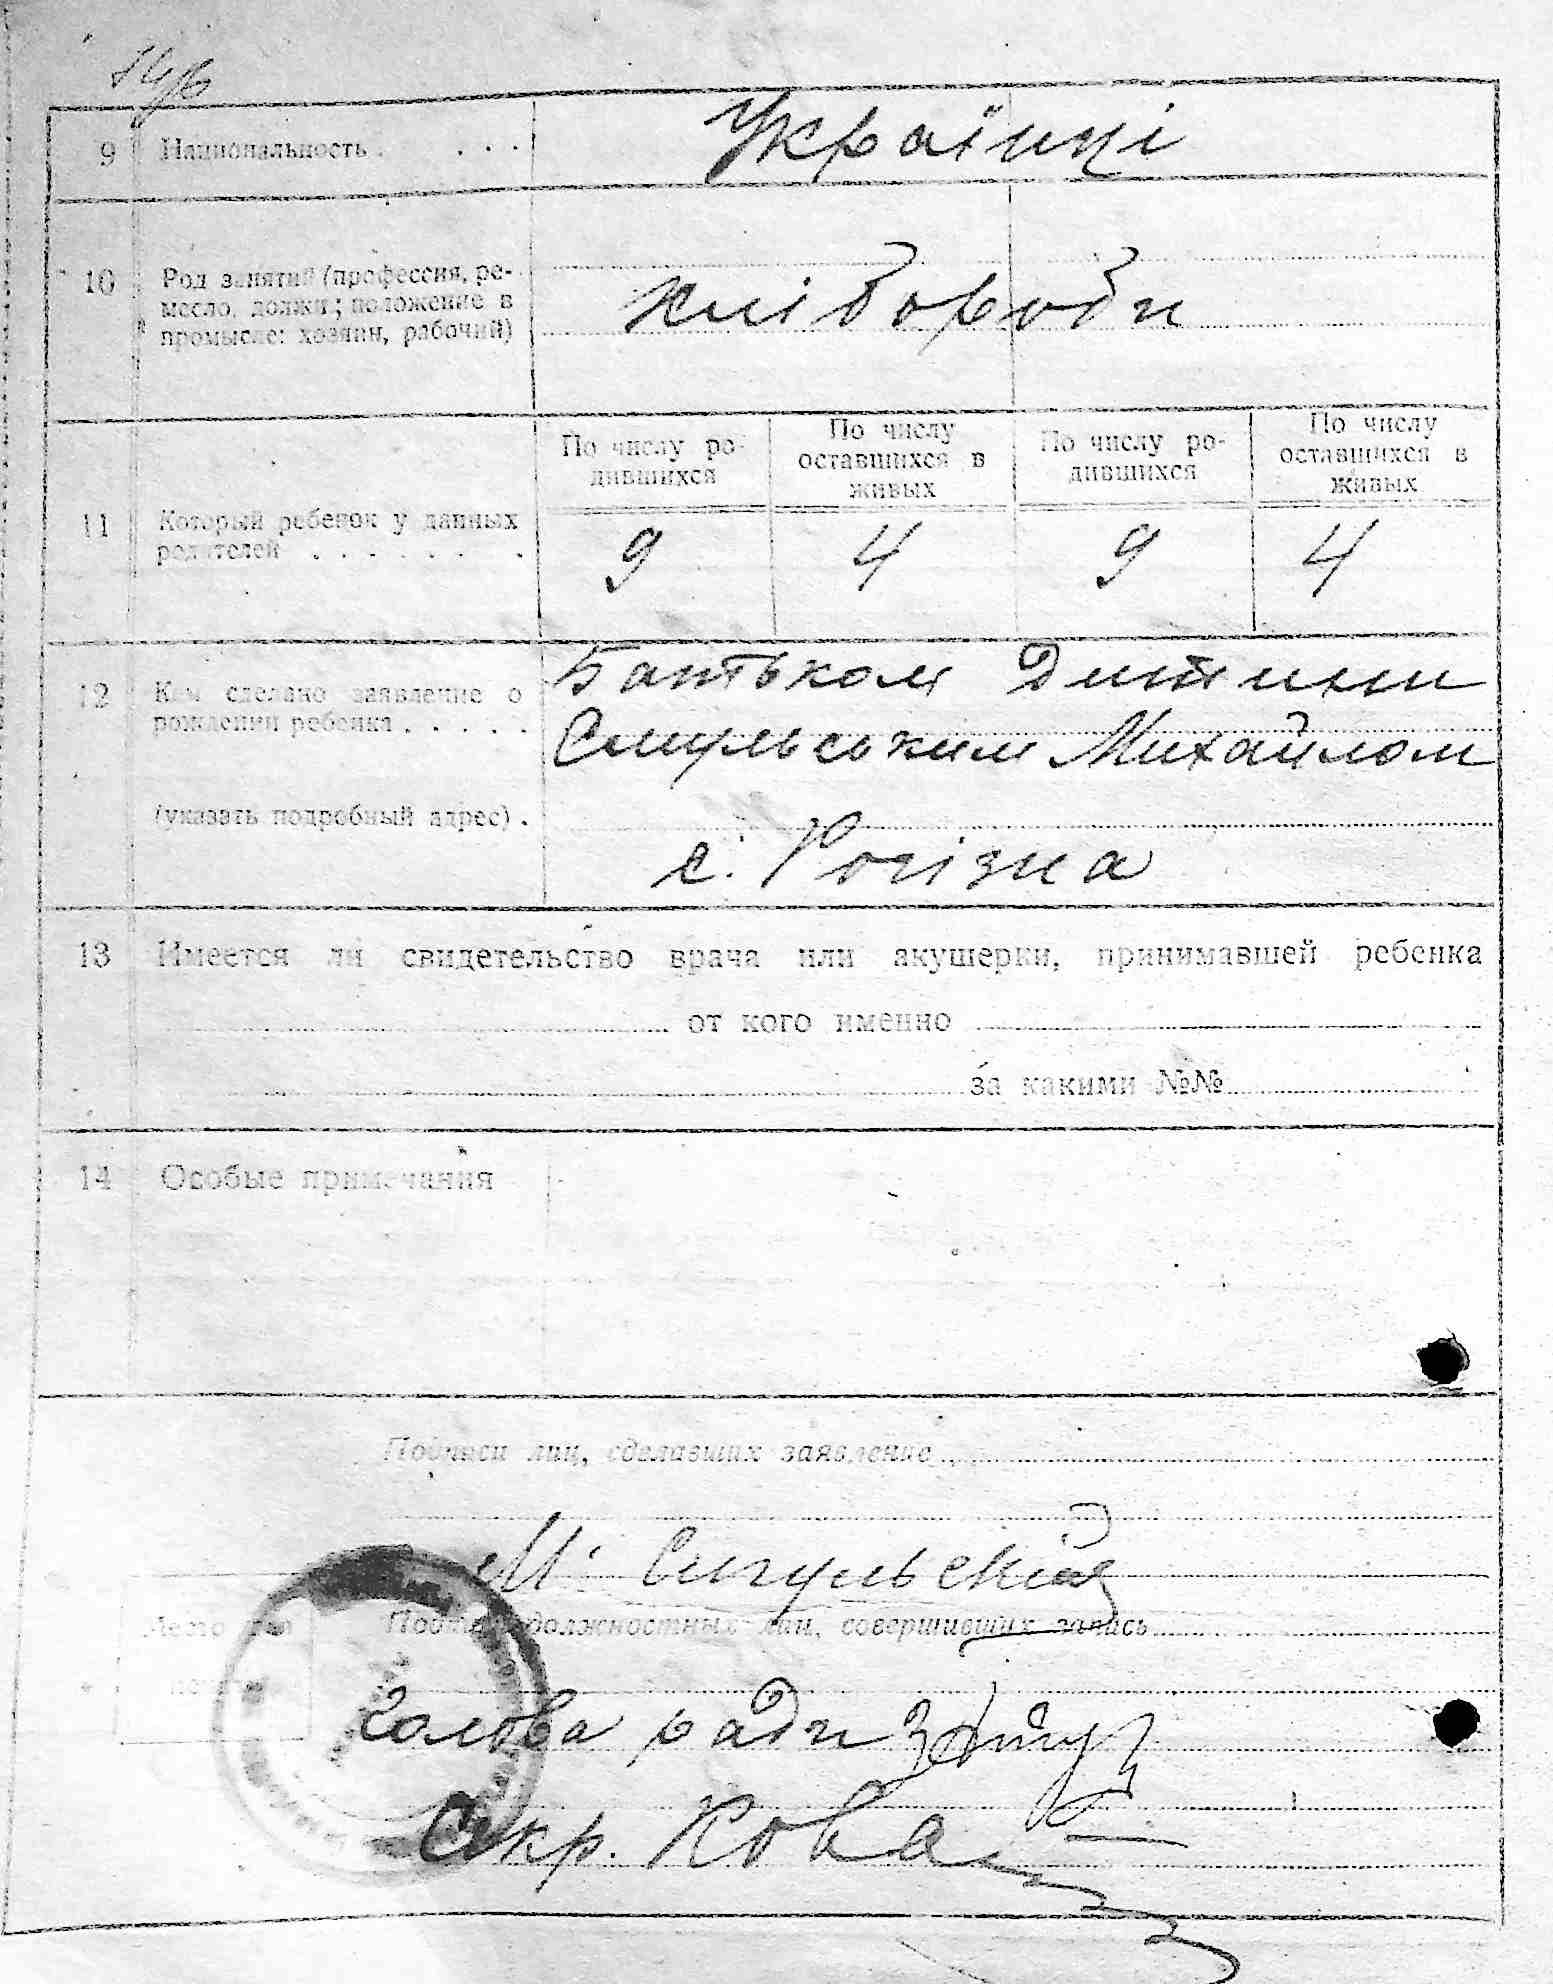 9 Национальность . . . . Українці
10 Род занятий (профессия, ре-
месло, должн; положение в
промысле: хозяин, рабочий)
хлібороби
По числу ро-
дившихся
По числу
оставшихся в
живых
По числу ро-
дившихся
По числу
оставшихся в
живых
11 Который ребенок у данных
родителей . . . . . . .
9 4 9 4
12 Кем сделано заявление о
рождении ребенка . . . . .
Батьком Дитини
Сигульським Михайлом
(указать подробный адрес) .
с. Рогізна
13 Имеется ли свидетельство врача или акушерки, принимавшей ребенка
от кого именно
за какими №№
14 Особые примечания
Подписи лиц, сделавших заявление
М. Сигульскій
Место для
печати
Подписи должностных лиц, совершивших запись
Голова ради
Секр.